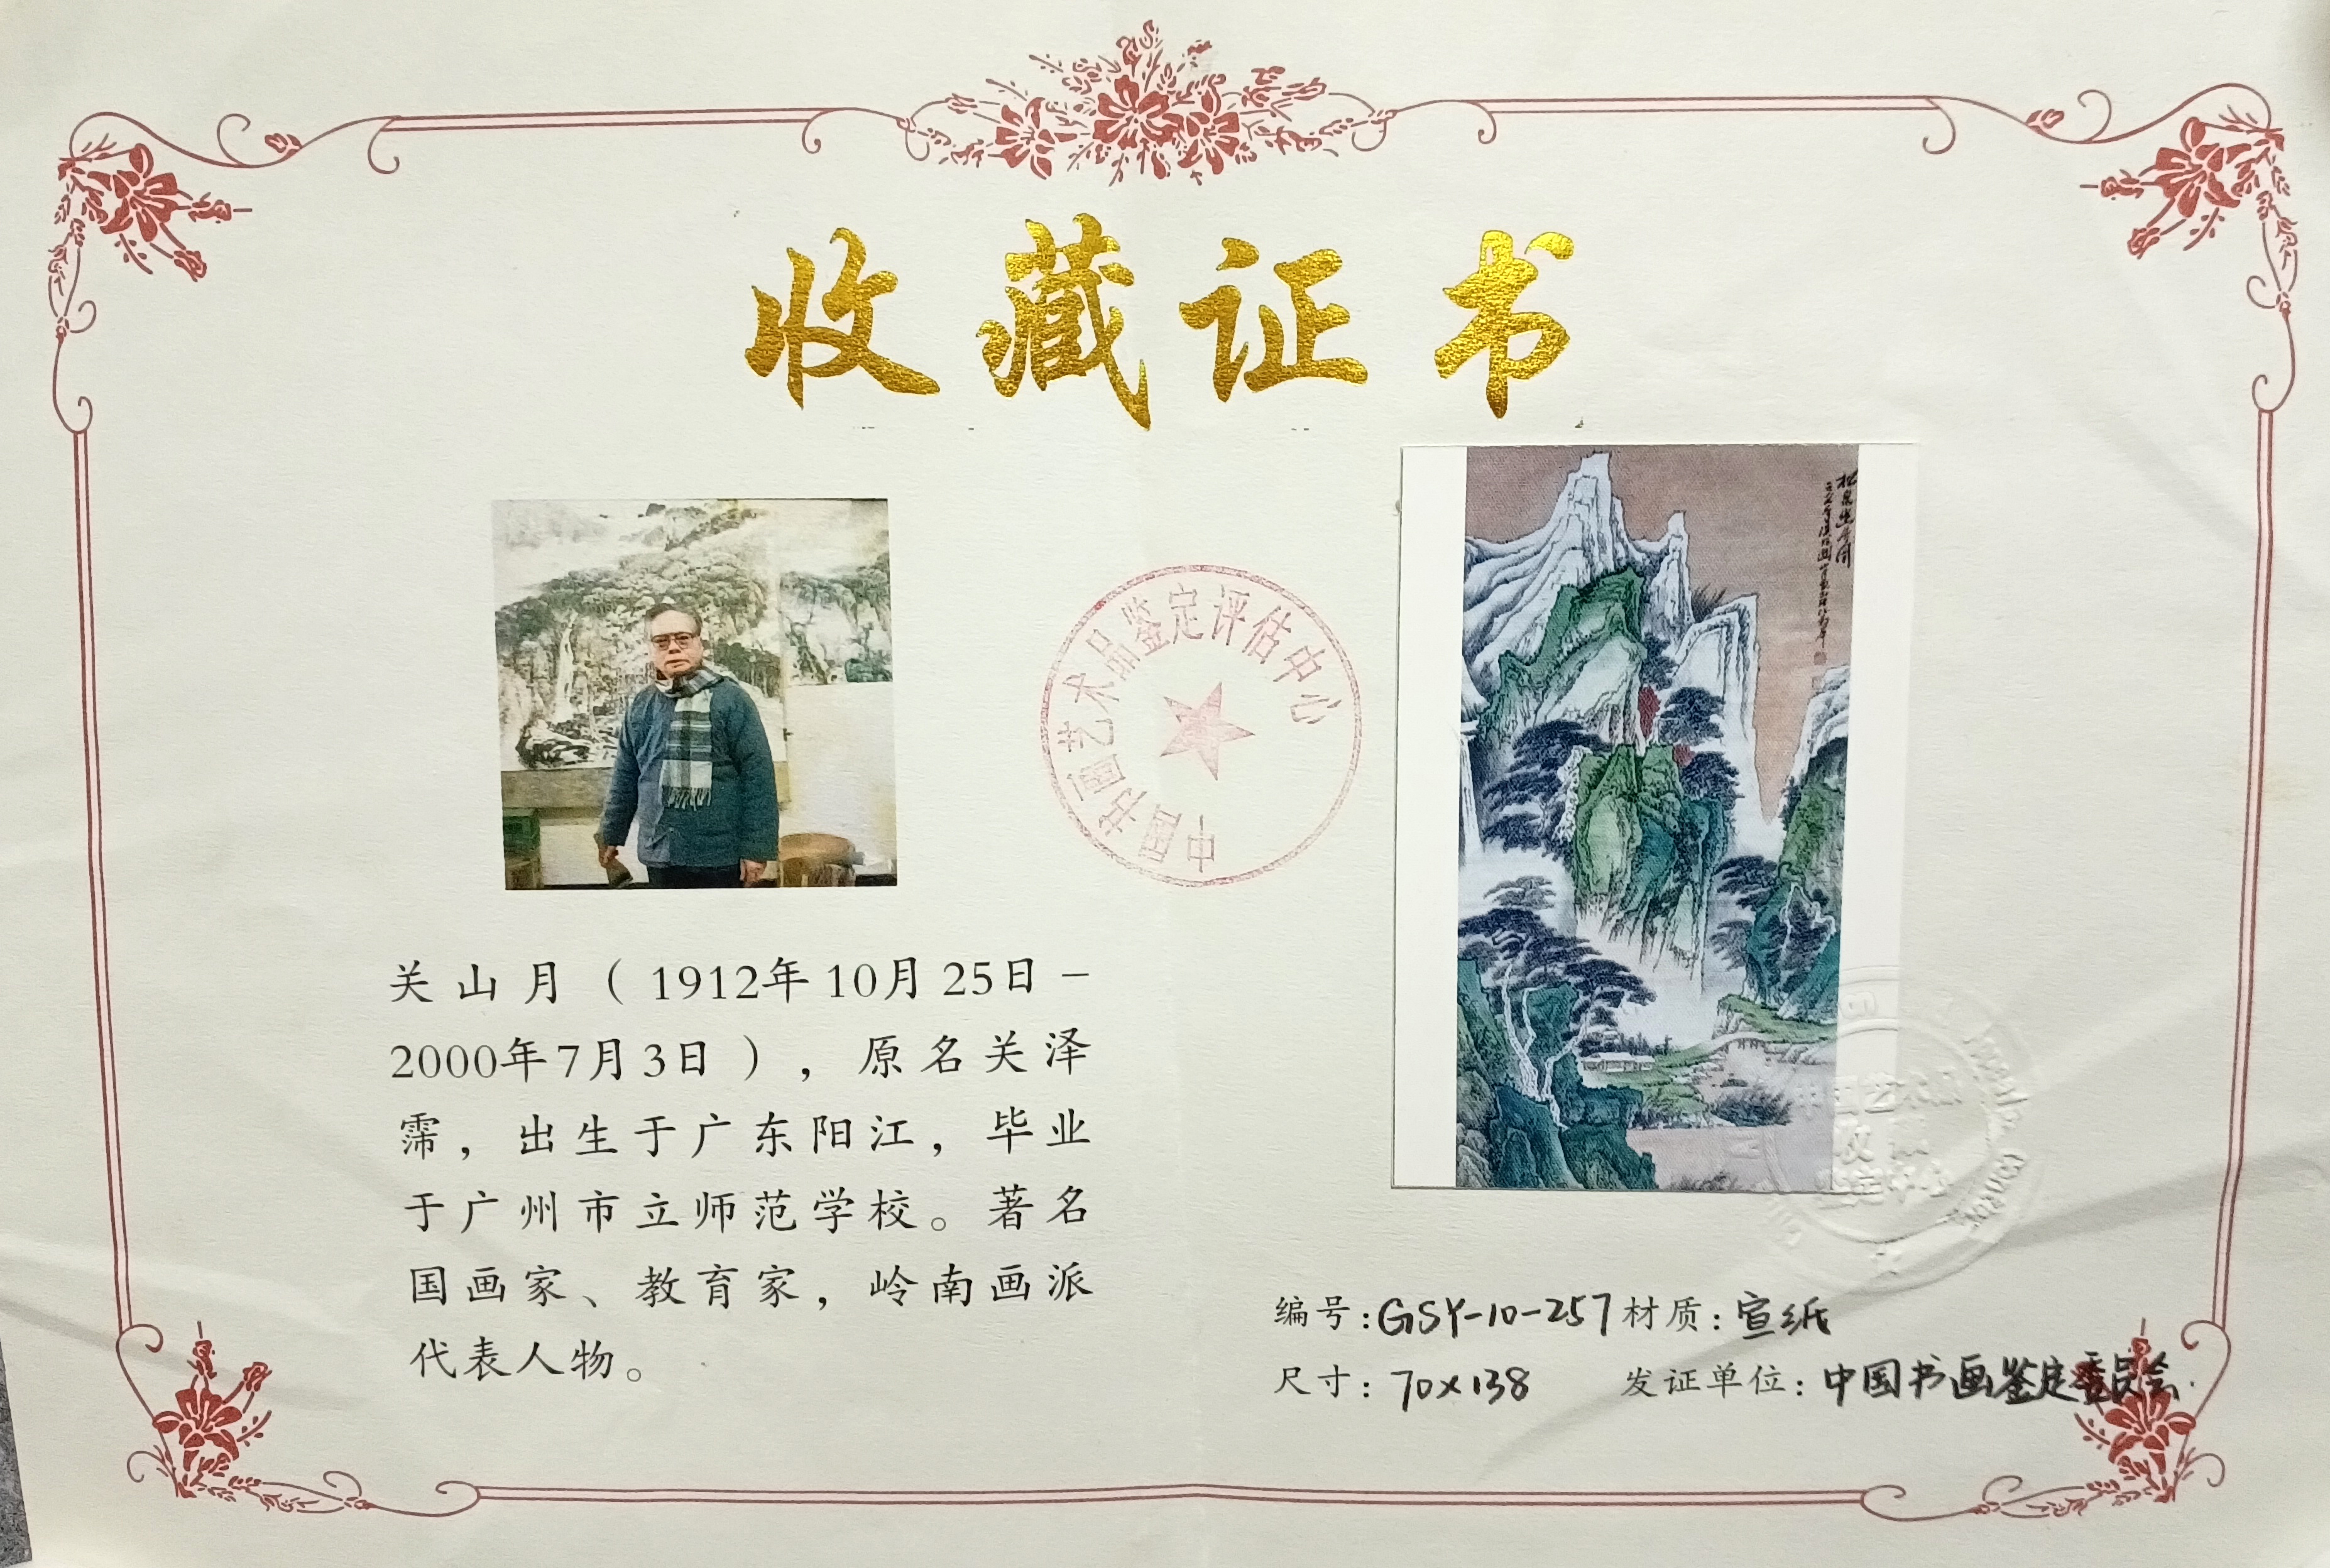 收藏证书
中国书画艺术品鉴定评估中心
关山月（1912年10月25日－
2000年7月3日），原名关泽
霈，出生于广东阳江，毕业
于广州市立师范学校。著名
国画家、教育家，岭南画派
代表人物。
编号：GSY-10-257 材质：宣纸
尺寸：70×138 发证单位：中国书画鉴定委员会